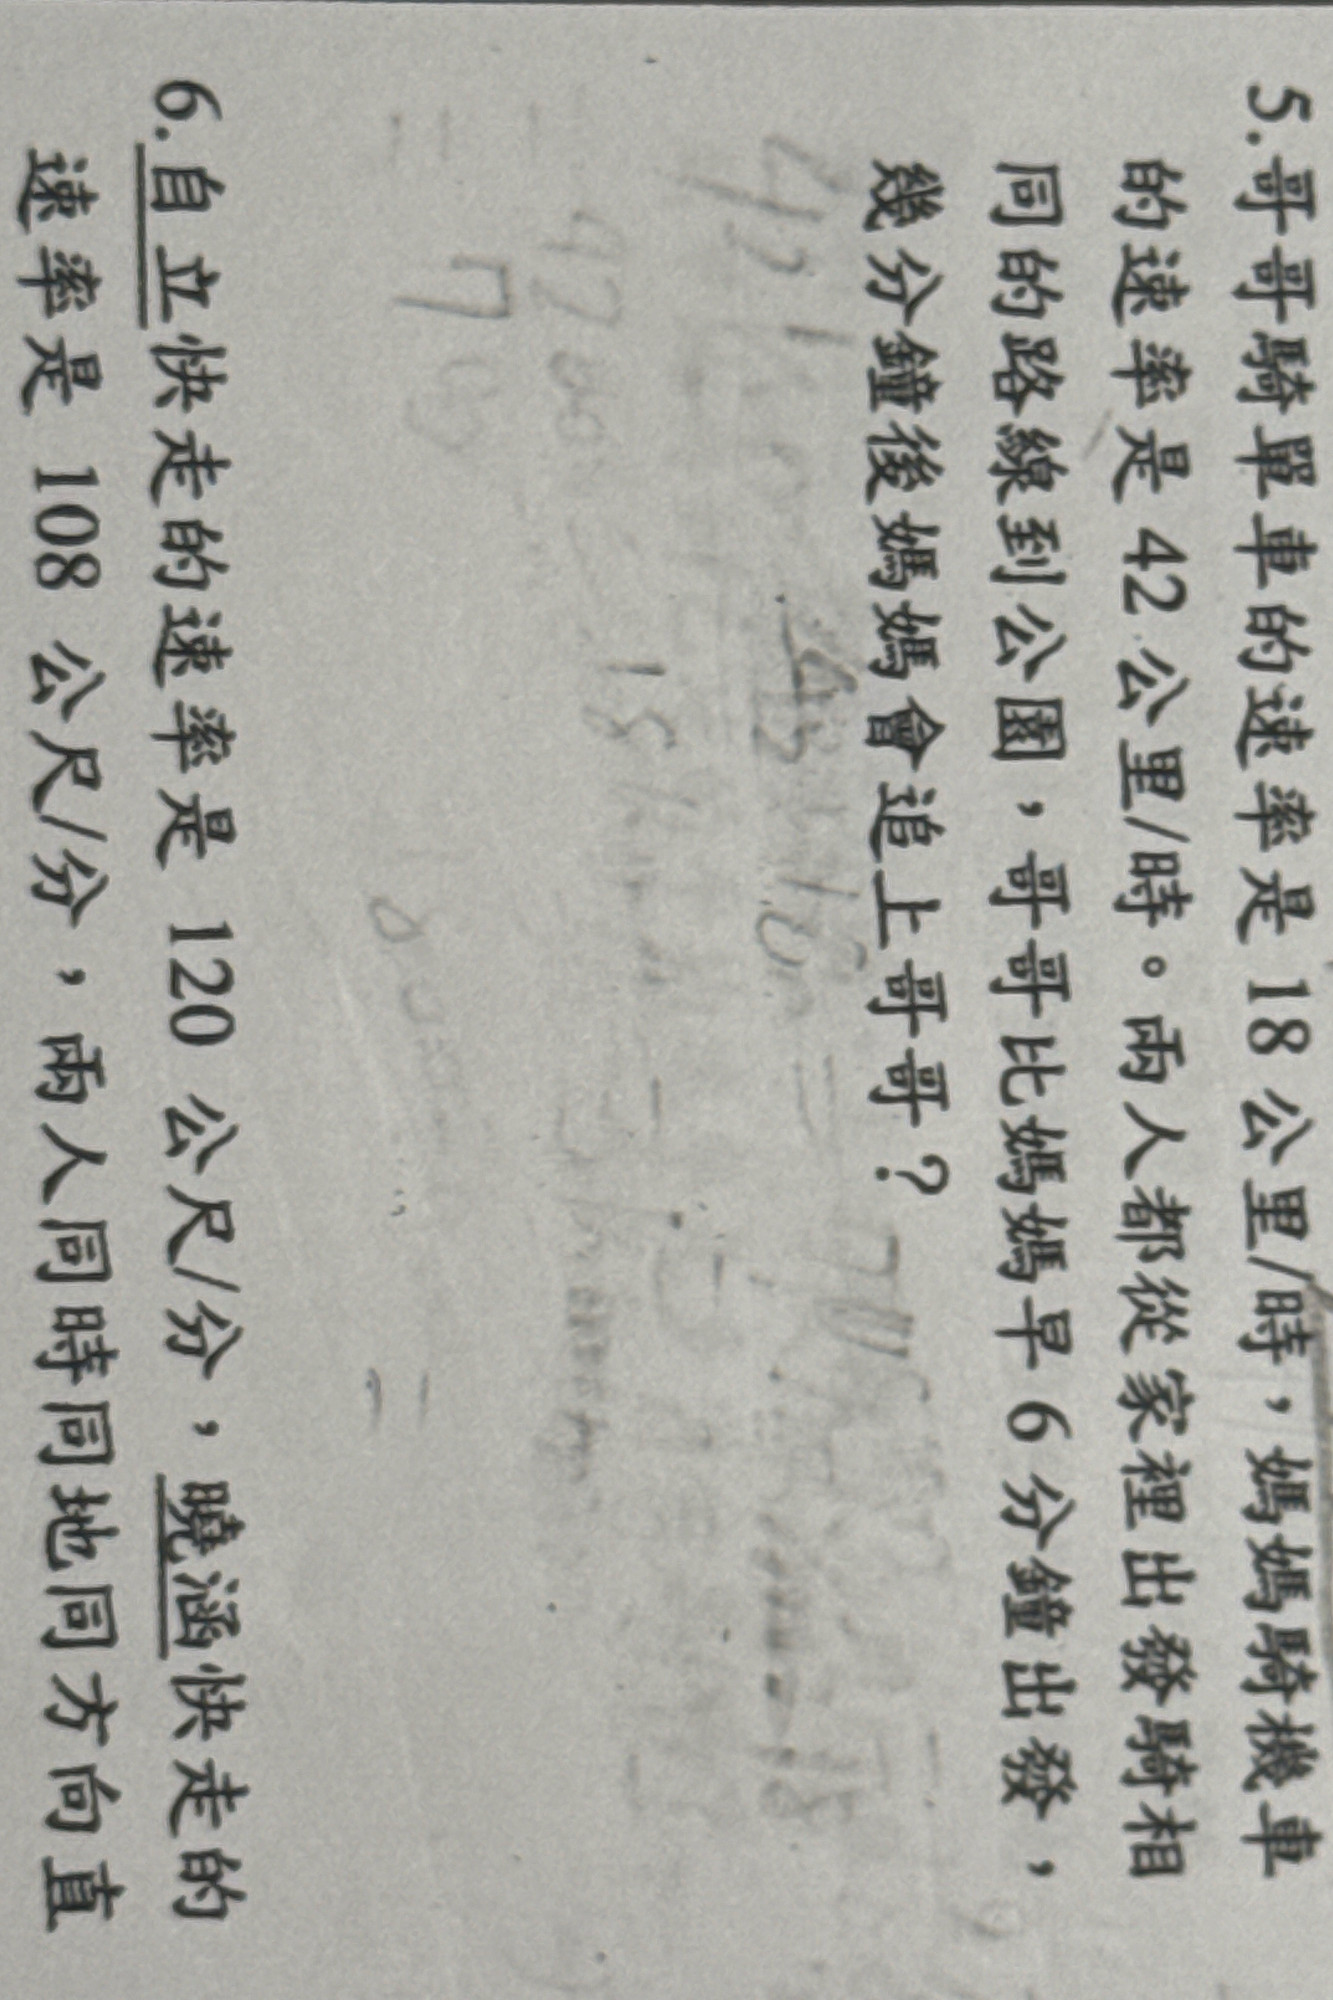 5.哥哥騎單車的速率是 18 公里/時，媽媽騎機車
的速率是 42 公里/時。兩人都從家裡出發騎相
同的路線到公園，哥哥比媽媽早 6 分鐘出發，
幾分鐘後媽媽會追上哥哥？
6.自立快走的速率是 120 公尺/分，曉涵快走的
速率是 108 公尺/分，兩人同時同地同方向直